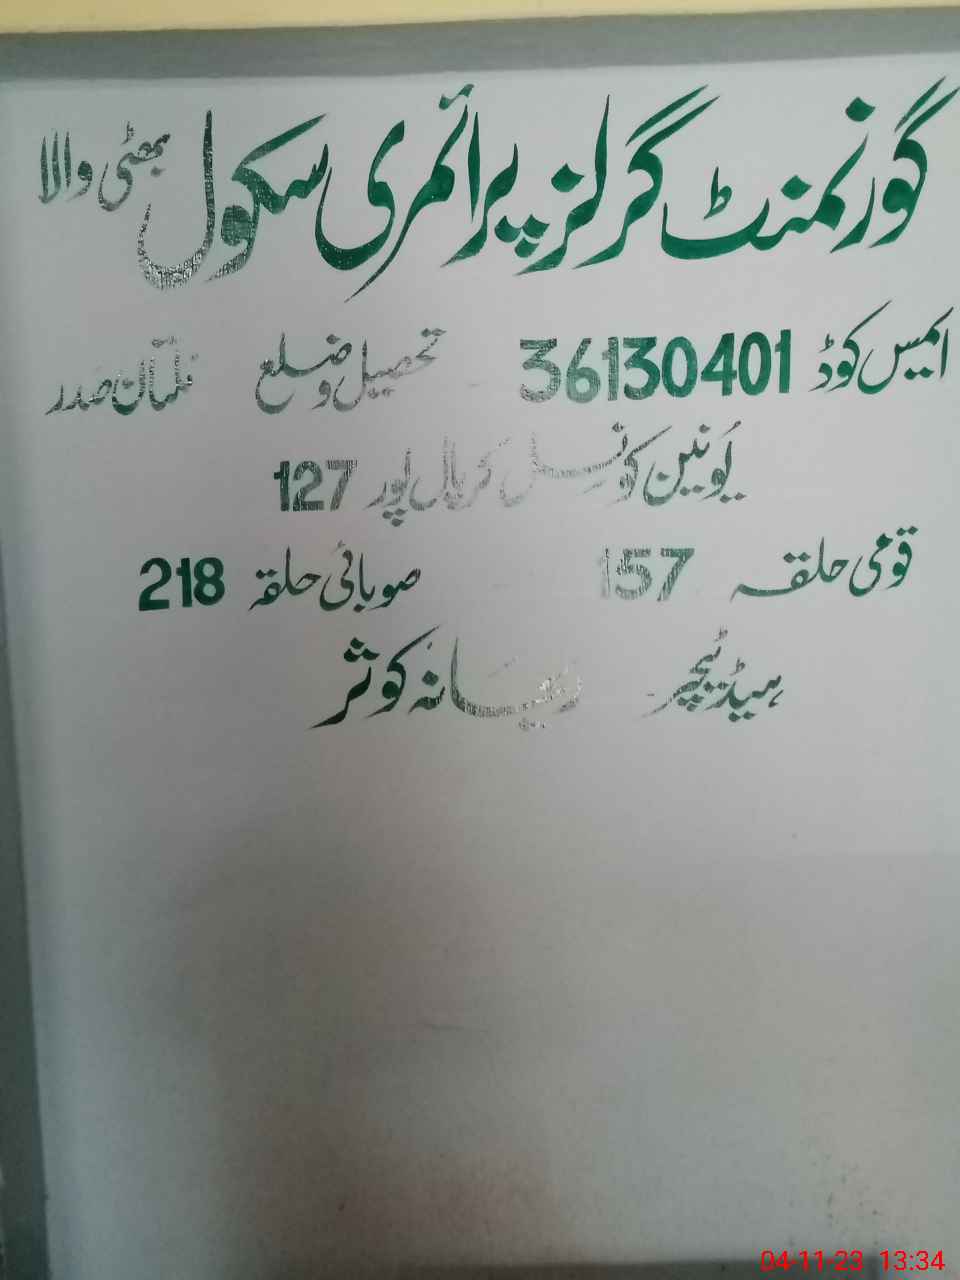 گورنمنٹ گرلز پرائمری سکول بھٹی والا
ایمس کوڈ 36130401 تحصیل و ضلع ملتان صدر
یُونین کونسل کریال پور 127
قومی حلقہ 157 صوبائی حلقہ 218
ہیڈ ٹیچر ریحانہ کوثر
04-11-23 13:34